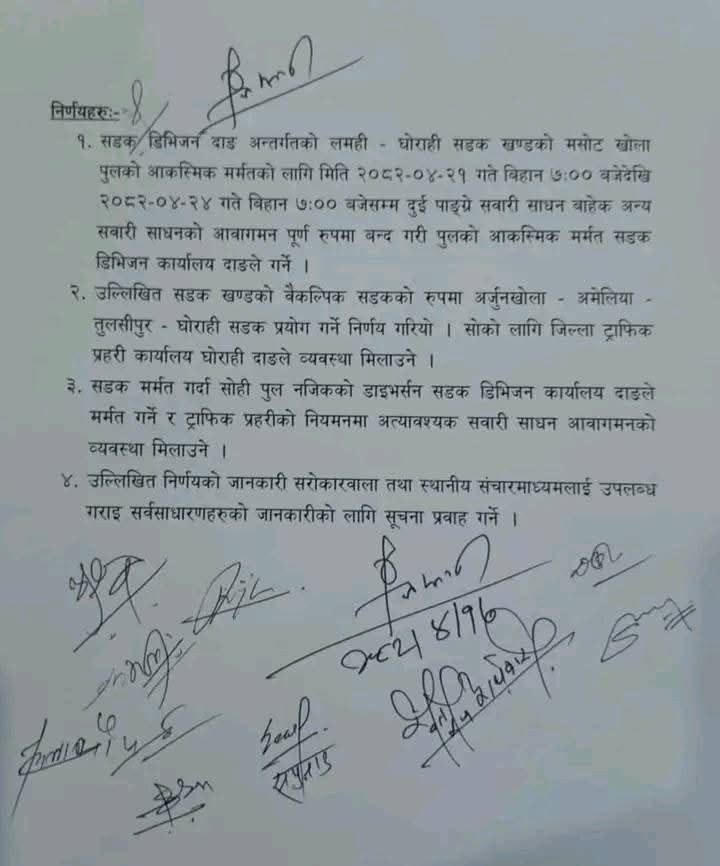 निर्णयहरुः-
१. सडक डिभिजन दाङ अन्तर्गतको लमही - घोराही सडक खण्डको मसोट खोला
पुलको आकस्मिक मर्मतको लागि मिति २०८२-०४-२१ गते विहान ७:०० बजेदेखि
२०८२-०४-२४ गते विहान ७:०० बजेसम्म दुई पाङ्ग्रे सवारी साधन वाहेक अन्य
सवारी साधनको आवागमन पूर्ण रुपमा बन्द गरी पुलको आकस्मिक मर्मत सडक
डिभिजन कार्यालय दाङले गर्ने ।
२. उल्लिखित सडक खण्डको वैकल्पिक सडकको रुपमा अर्जुनखोला - अमेलिया -
तुलसीपुर - घोराही सडक प्रयोग गर्ने निर्णय गरियो । सोको लागि जिल्ला ट्राफिक
प्रहरी कार्यालय घोराही दाङले व्यवस्था मिलाउने ।
३. सडक मर्मत गर्दा सोही पुल नजिकको डाइभर्सन सडक डिभिजन कार्यालय दाङले
मर्मत गर्ने र ट्राफिक प्रहरीको नियमनमा अत्यावश्यक सवारी साधन आवागमनको
व्यवस्था मिलाउने ।
४. उल्लिखित निर्णयको जानकारी सरोकारवाला तथा स्थानीय संचारमाध्यमलाई उपलब्ध
गराइ सर्वसाधारणहरुको जानकारीको लागि सूचना प्रवाह गर्ने ।